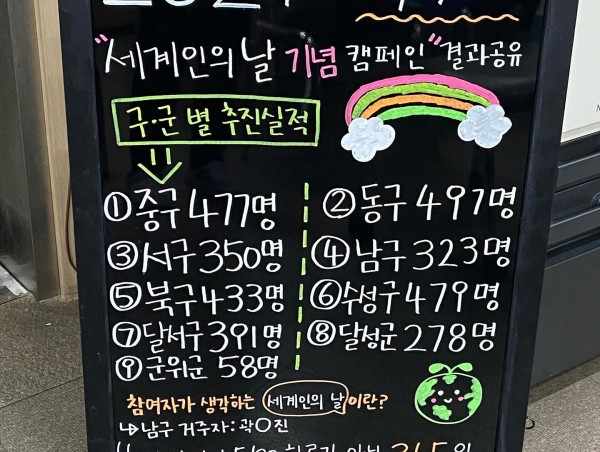 "세계인의 날 기념 캠페인" 결과공유
구·군 별 추진실적
① 중구 477명
② 동구 497명
③ 서구 350명
④ 남구 323명
⑤ 북구 433명
⑥ 수성구 479명
⑦ 달서구 391명
⑧ 달성군 278명
⑨ 군위군 58명
참여자가 생각하는 세계인의 날 이란?
↳ 남구 거주자: 곽O진